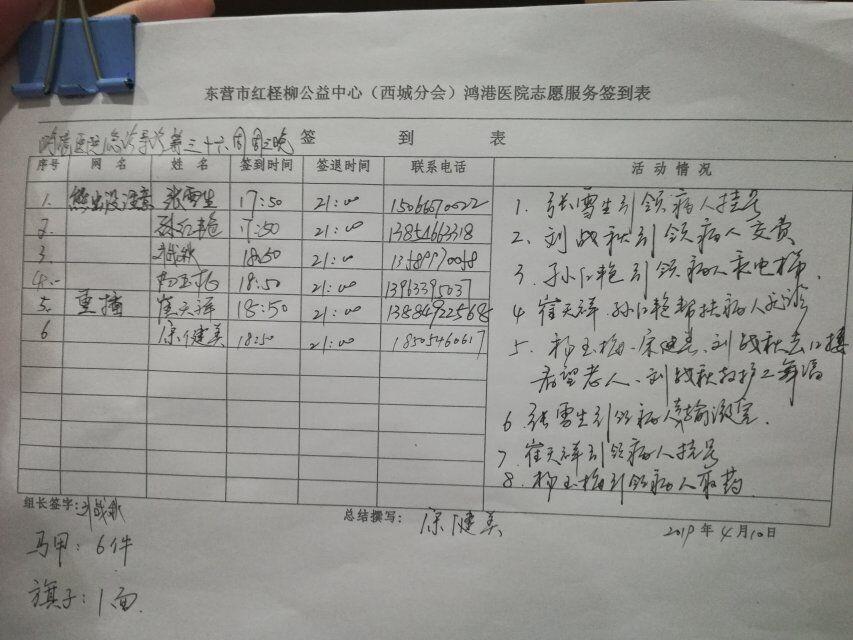 东营市红柽柳公益中心（西城分会）鸿港医院志愿服务签到表
鸿港医院急诊导诊第三十六周周三晚 签 到 表
序号 网 名 姓 名 签到时间 签退时间 联系电话 活 动 情 况
1. 熊出没注意 张雪生 17:50 21:00
2. 孙红艳 17:50 21:00 13854663318
3. 刘战秋 18:50 21:00
4. 柳玉梅 18:50 21:00 13963395037
5. 重播 崔天祥 18:50 21:00 13884922568
6 宋健美 18:50 21:00 18505460617
1. 张雪生引领病人挂号
2. 刘战秋引领病人交费
3. 孙红艳引领病人乘电梯.
4 崔天祥.孙红艳帮扶病人就诊
5. 柳玉梅.宋健美.刘战秋去12楼
看望老人.刘战秋
6 张雪生引领病人去输液室.
7. 崔天祥引领病人挂号
8. 柳玉梅引领病人取药.
组长签字: 刘战秋
总结撰写: 宋健美
2019 年 4 月 10 日
马甲: 6件
旗子: 1面.